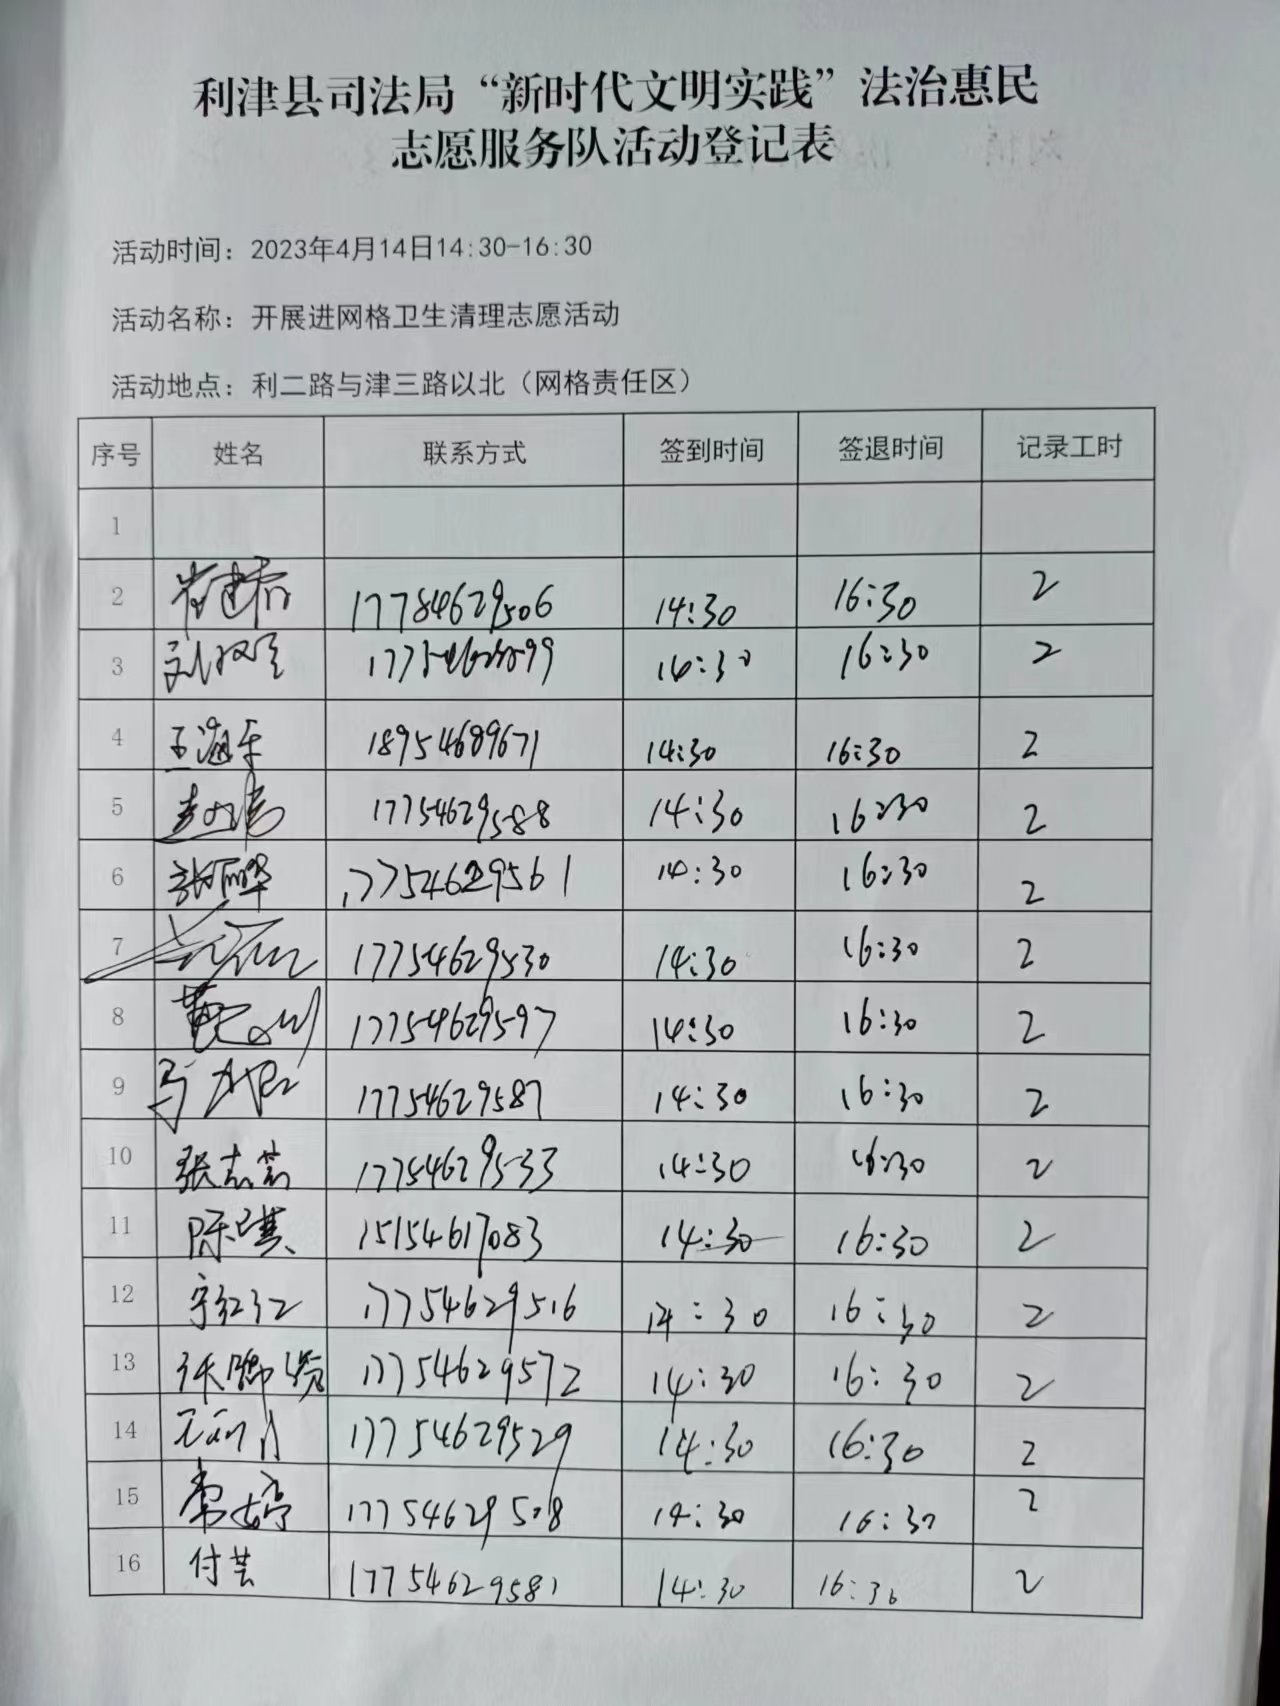 利津县司法局“新时代文明实践”法治惠民
志愿服务队活动登记表
活动时间：2023年4月14日14:30-16:30
活动名称：开展进网格卫生清理志愿活动
活动地点：利二路与津三路以北（网格责任区）
序号 姓名 联系方式 签到时间 签退时间 记录工时
1
2 17784629506 14:30 16:30 2
3 14:30 16:30 2
4 王海乐 18954689671 14:30 16:30 2
5 17754629588 14:30 16:30 2
6 张丽华 17754629561 14:30 16:30 2
7 17754629530 14:30 16:30 2
8 17754629597 14:30 16:30 2
9 17754629587 14:30 16:30 2
10 张志芳 17754629533 14:30 16:30 2
11 陈琪 15154617083 14:30 16:30 2
12 17754629516 14:30 16:30 2
13 17754629572 14:30 16:30 2
14 17754629529 14:30 16:30 2
15 常婷 17754629508 14:30 16:30 2
16 付芸 17754629581 14:30 16:30 2